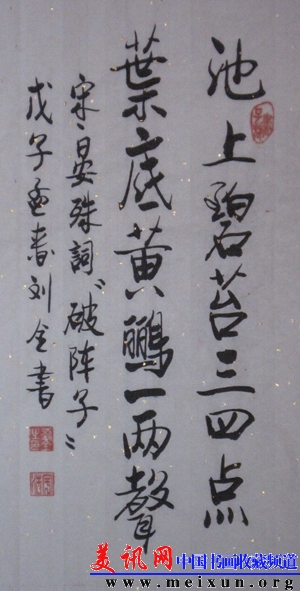 池上碧苔三四点
葉底黄鸝一两聲
宋晏殊詞"破阵子"
戊子孟春刘全書
美讯网
中国书画收藏频道
www.meixun.org